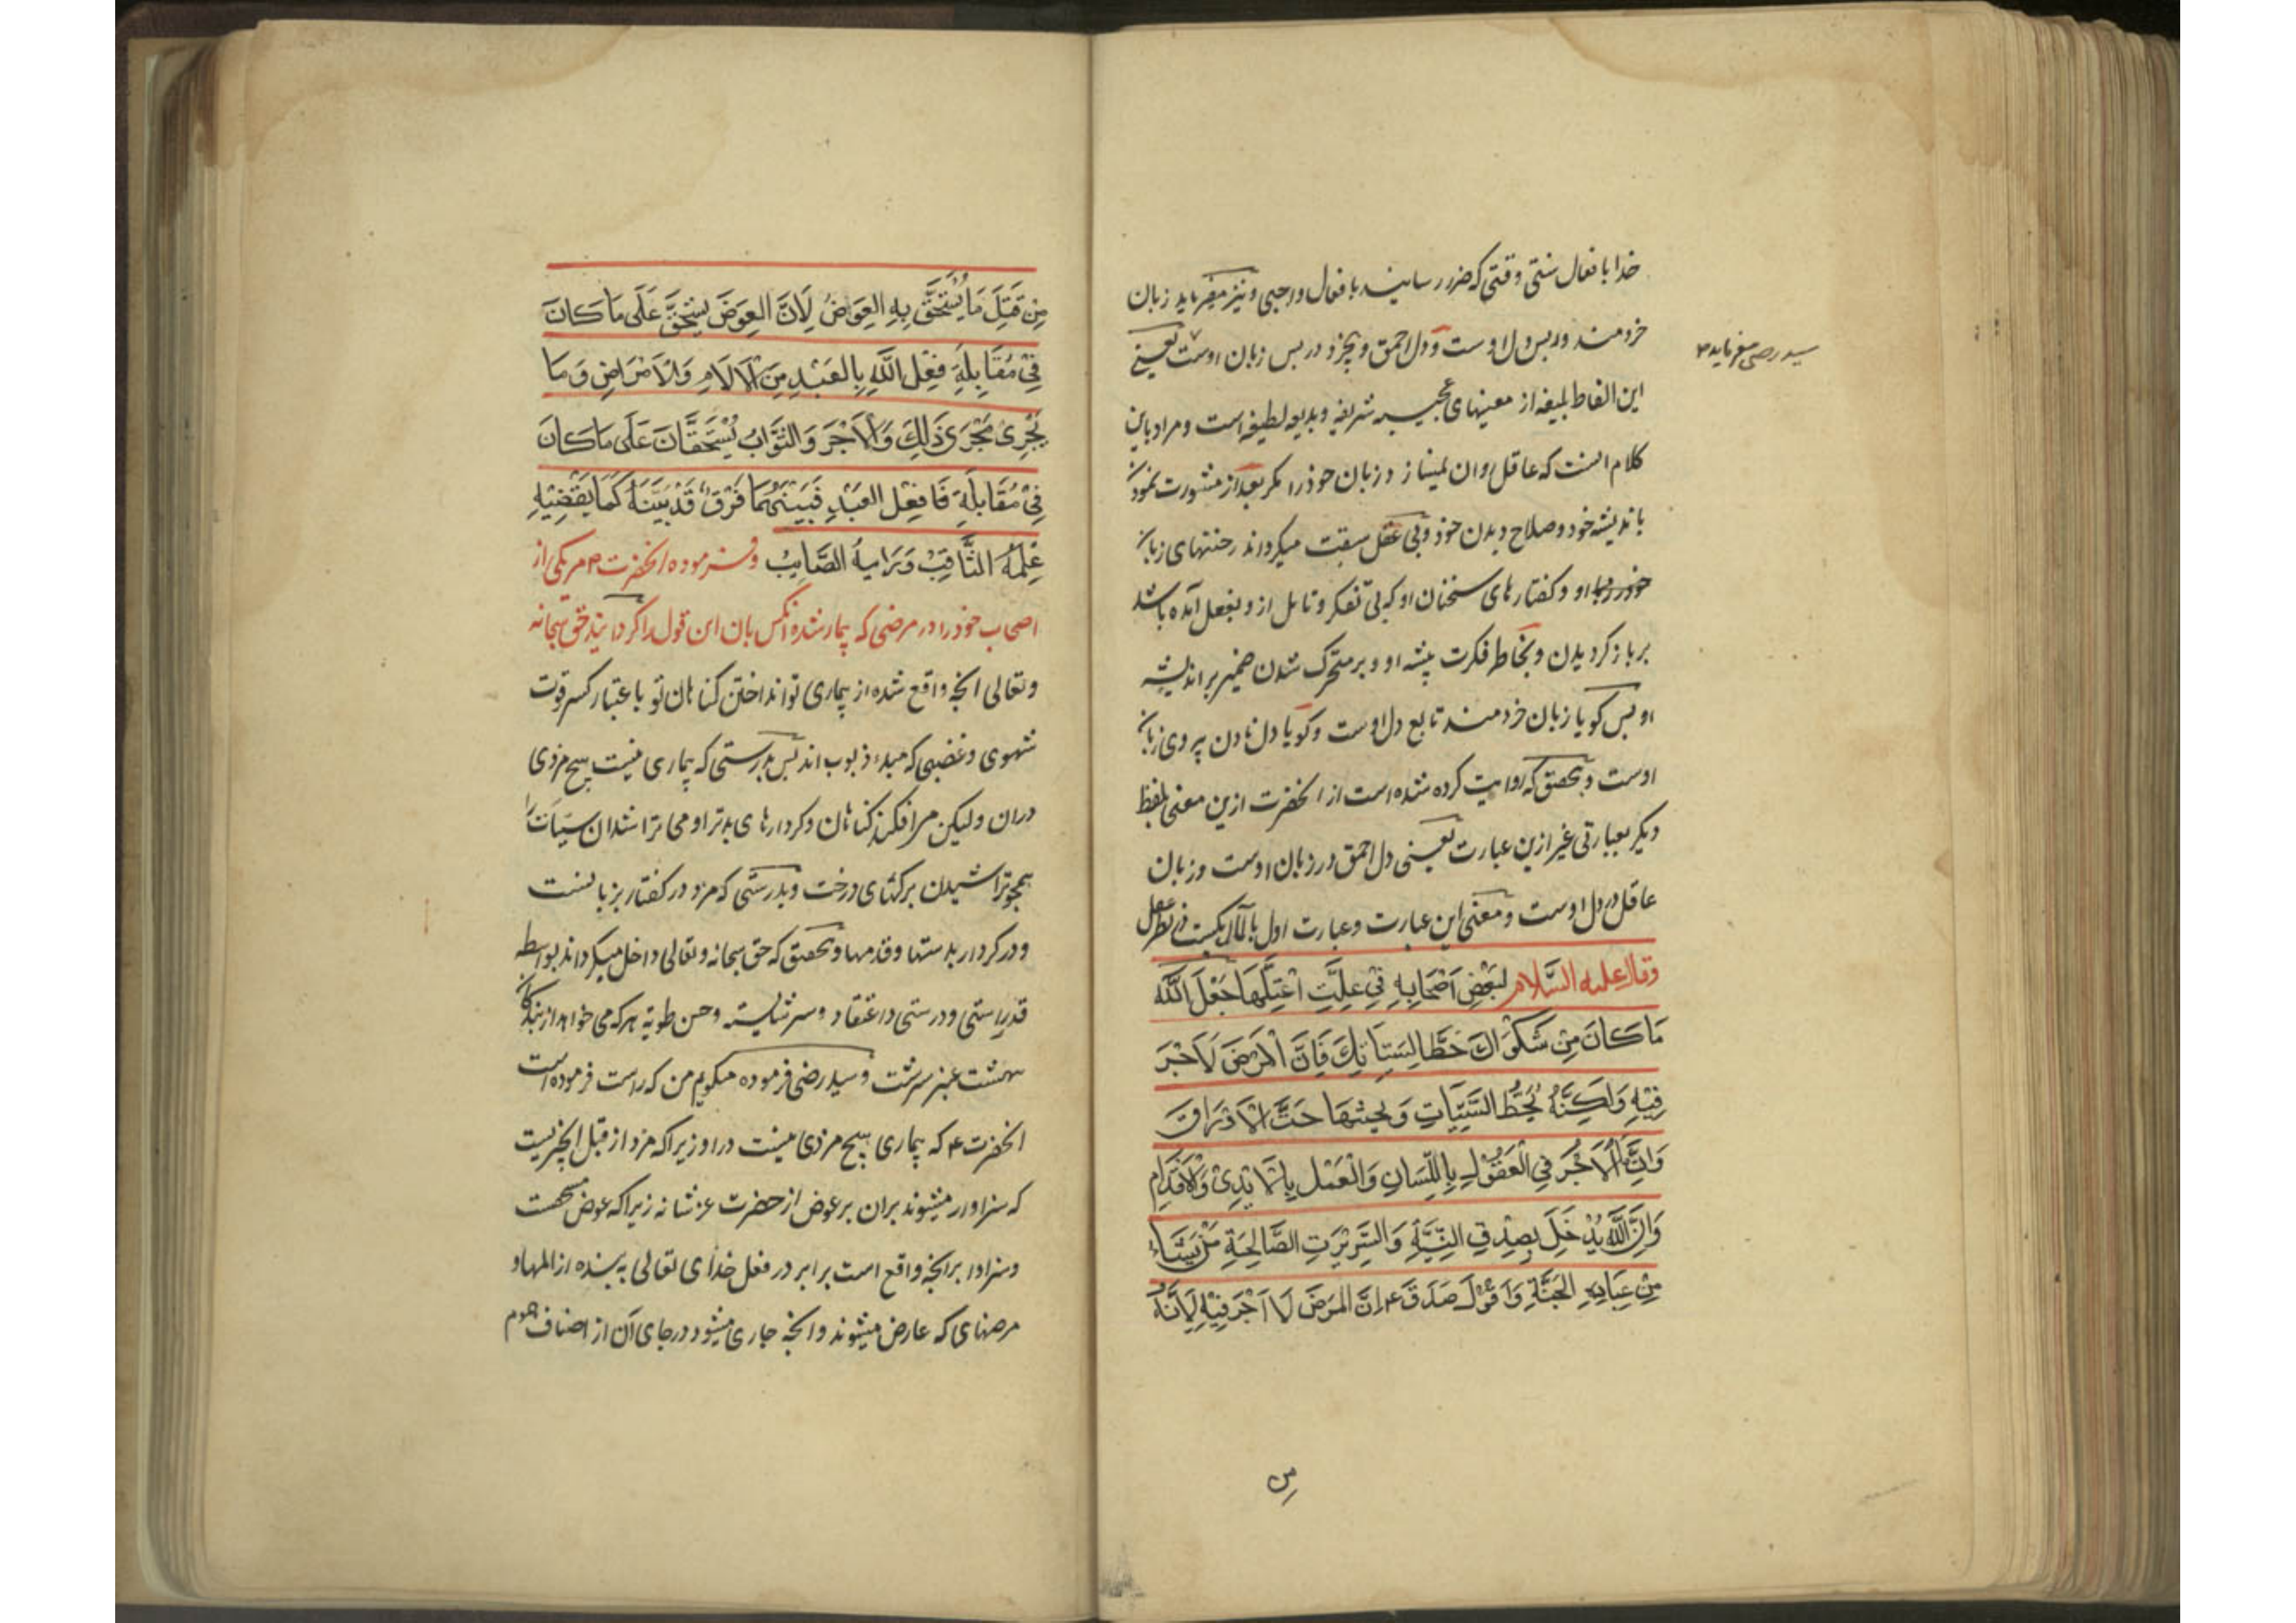 خدا بافعال سنتی وقتی که ضرر رسانیند بافعال واجبی و نیز میفرماید زبان
خردمند در پس دل اوست و دل احمق و بیخرد در پس زبان اوست یعنی
سید رضی میفرماید
این الفاظ بلیغه از معنیهای عجیبه شریفه و بدیعه لطیفه است و مراد باین
کلام انست که عاقل روان نمیسازد زبان خود را مکر بعد از مشورت نمودن
باندیشه خود و صلاح دیدن خود و بی عقل سبقت میکرداند رخنتهای زبان
او و کفتارهای سخنان او که بی تفکر و تامل از و بفعل آمده باشد
بر بازکردیدن و بخاطر فکرت پیشه او و بر متحرک شدن ضمیر بر اندیشه
او پس کویا زبان خردمند تابع دل اوست و کویا دل نادن پیروی زبان
اوست و بتحقیق که روایت کرده شده است از انحضرت ازین معنی بلفظ
دیکر بعبارتی غیر ازین عبارت یعنی دل احمق در زبان اوست و زبان
عاقل در دل اوست و معنی این عبارت و عبارت اول بالمآل یکیست در نظر عقل
وقال علیه السَّلام لبَعْضِ اَصْحَابِهِ فِی عِلَّتِ اعْتَلَّهَا جَعَلَ اللّٰه
مَا کَانَ مِن شَکْوَاكَ حَطًّا لِسَیِّاتِكَ فَاِنَّ الْمَرَضَ لَا اَجْرَ
فِیْهِ وَلٰکِنَّهُ یَحُطُّ السَّیِّئَاتِ وَ یَحِتُّهَا حَتَّ الْاَوْرَاقِ
وَاِنَّمَا الْاَجْرُ فِی الْقَوْلِ بِاللِّسَانِ وَالْعَمَلِ بِالْاَیْدِیْ وَالْاَقْدَامِ
وَاِنَّ اللّٰهَ یُدْخِلُ بِصِدْقِ النِّیَّةِ وَالسَّرِیْرَتِ الصَّالِحَةِ مَنْ یَشَاءُ
مِنْ عِبَادِهِ الْجَنَّةَ وَاَقُوْلُ صَدَقَ ۴ اِنَّ الْمَرَضَ لَا اَجْرَ فِیْهِ لِاَنَّهُ
مِن
مِن قَبْلَ مَا یُسْتَحَقُّ بِهِ العِوَاضُ لِاَنَّ العِوَضَ یُسْتَحَقُّ عَلَی مَا کَانَ
فِیْ مُقَابِلَةِ فِعْلِ اللّٰهِ بِالْعَبْدِ مِنَ الْاٰلَامِ وَالْاَمْرَاضِ وَ مَا
یَجْرِیْ مَجْرَی ذَلِكَ وَالْاَجْرَ وَالثَّوَابُ یُسْتَحَقَّانَ عَلَی مَا کَانَ
فِیْ مُقَابِلَةِ فِعْلِ الْعَبْدِ فَبَیْنَهُمَا فَرْقٌ قَدْ بَیَّنَهُ کَمَا یَقْتَضِیْهِ
عِلْمُهُ الثَّاقِبُ وَ رَایهُ الصَّایِبُ و فرموده انحضرت مر یکی از
اصحاب خود را در مرضی که بیمار شده انکس بان این قول را کرداند حق سبحانه
و تعالی انچه واقع شده از بیماری تو انداختن کناهان تو باعتبار کسر قوت
شهوی و غضبی که مبدء ذنوب اند پس بدرستی که بیماری نیست هیچ مزدی
دران ولیکن می افکند کناهان و کردارهای بدتر او می تراشد ان سیّات را
همچو تراشیدن برکهای درخت و بدرستی که مزد در کفتار بزبانست
و در کردار بدستها و قدمها و بتحقیق که حق سبحانه و تعالی داخل میکرداند بواسطه
راستی و درستی و اعتقاد و سر شایسته و حسن طویه هر که می خواهد از بندکان
بهشت عنبر سرشت و سید رضی فرموده میکویم من که راست فرموده است
انحضرت ۴ که بیماری هیچ مزدی نیست در او زیرا که مزد از قبل چیزیست
که سزاوار میشوند بران بر عوض از حضرت عز شانه زیرا که عوض مستحقست
و سزاوار برانچه واقع است برابر در فعل خدای تعالی به بنده از المها و
مرضهای که عارض میشوند و انچه جاری میشود در جای آن از اصناف هموم